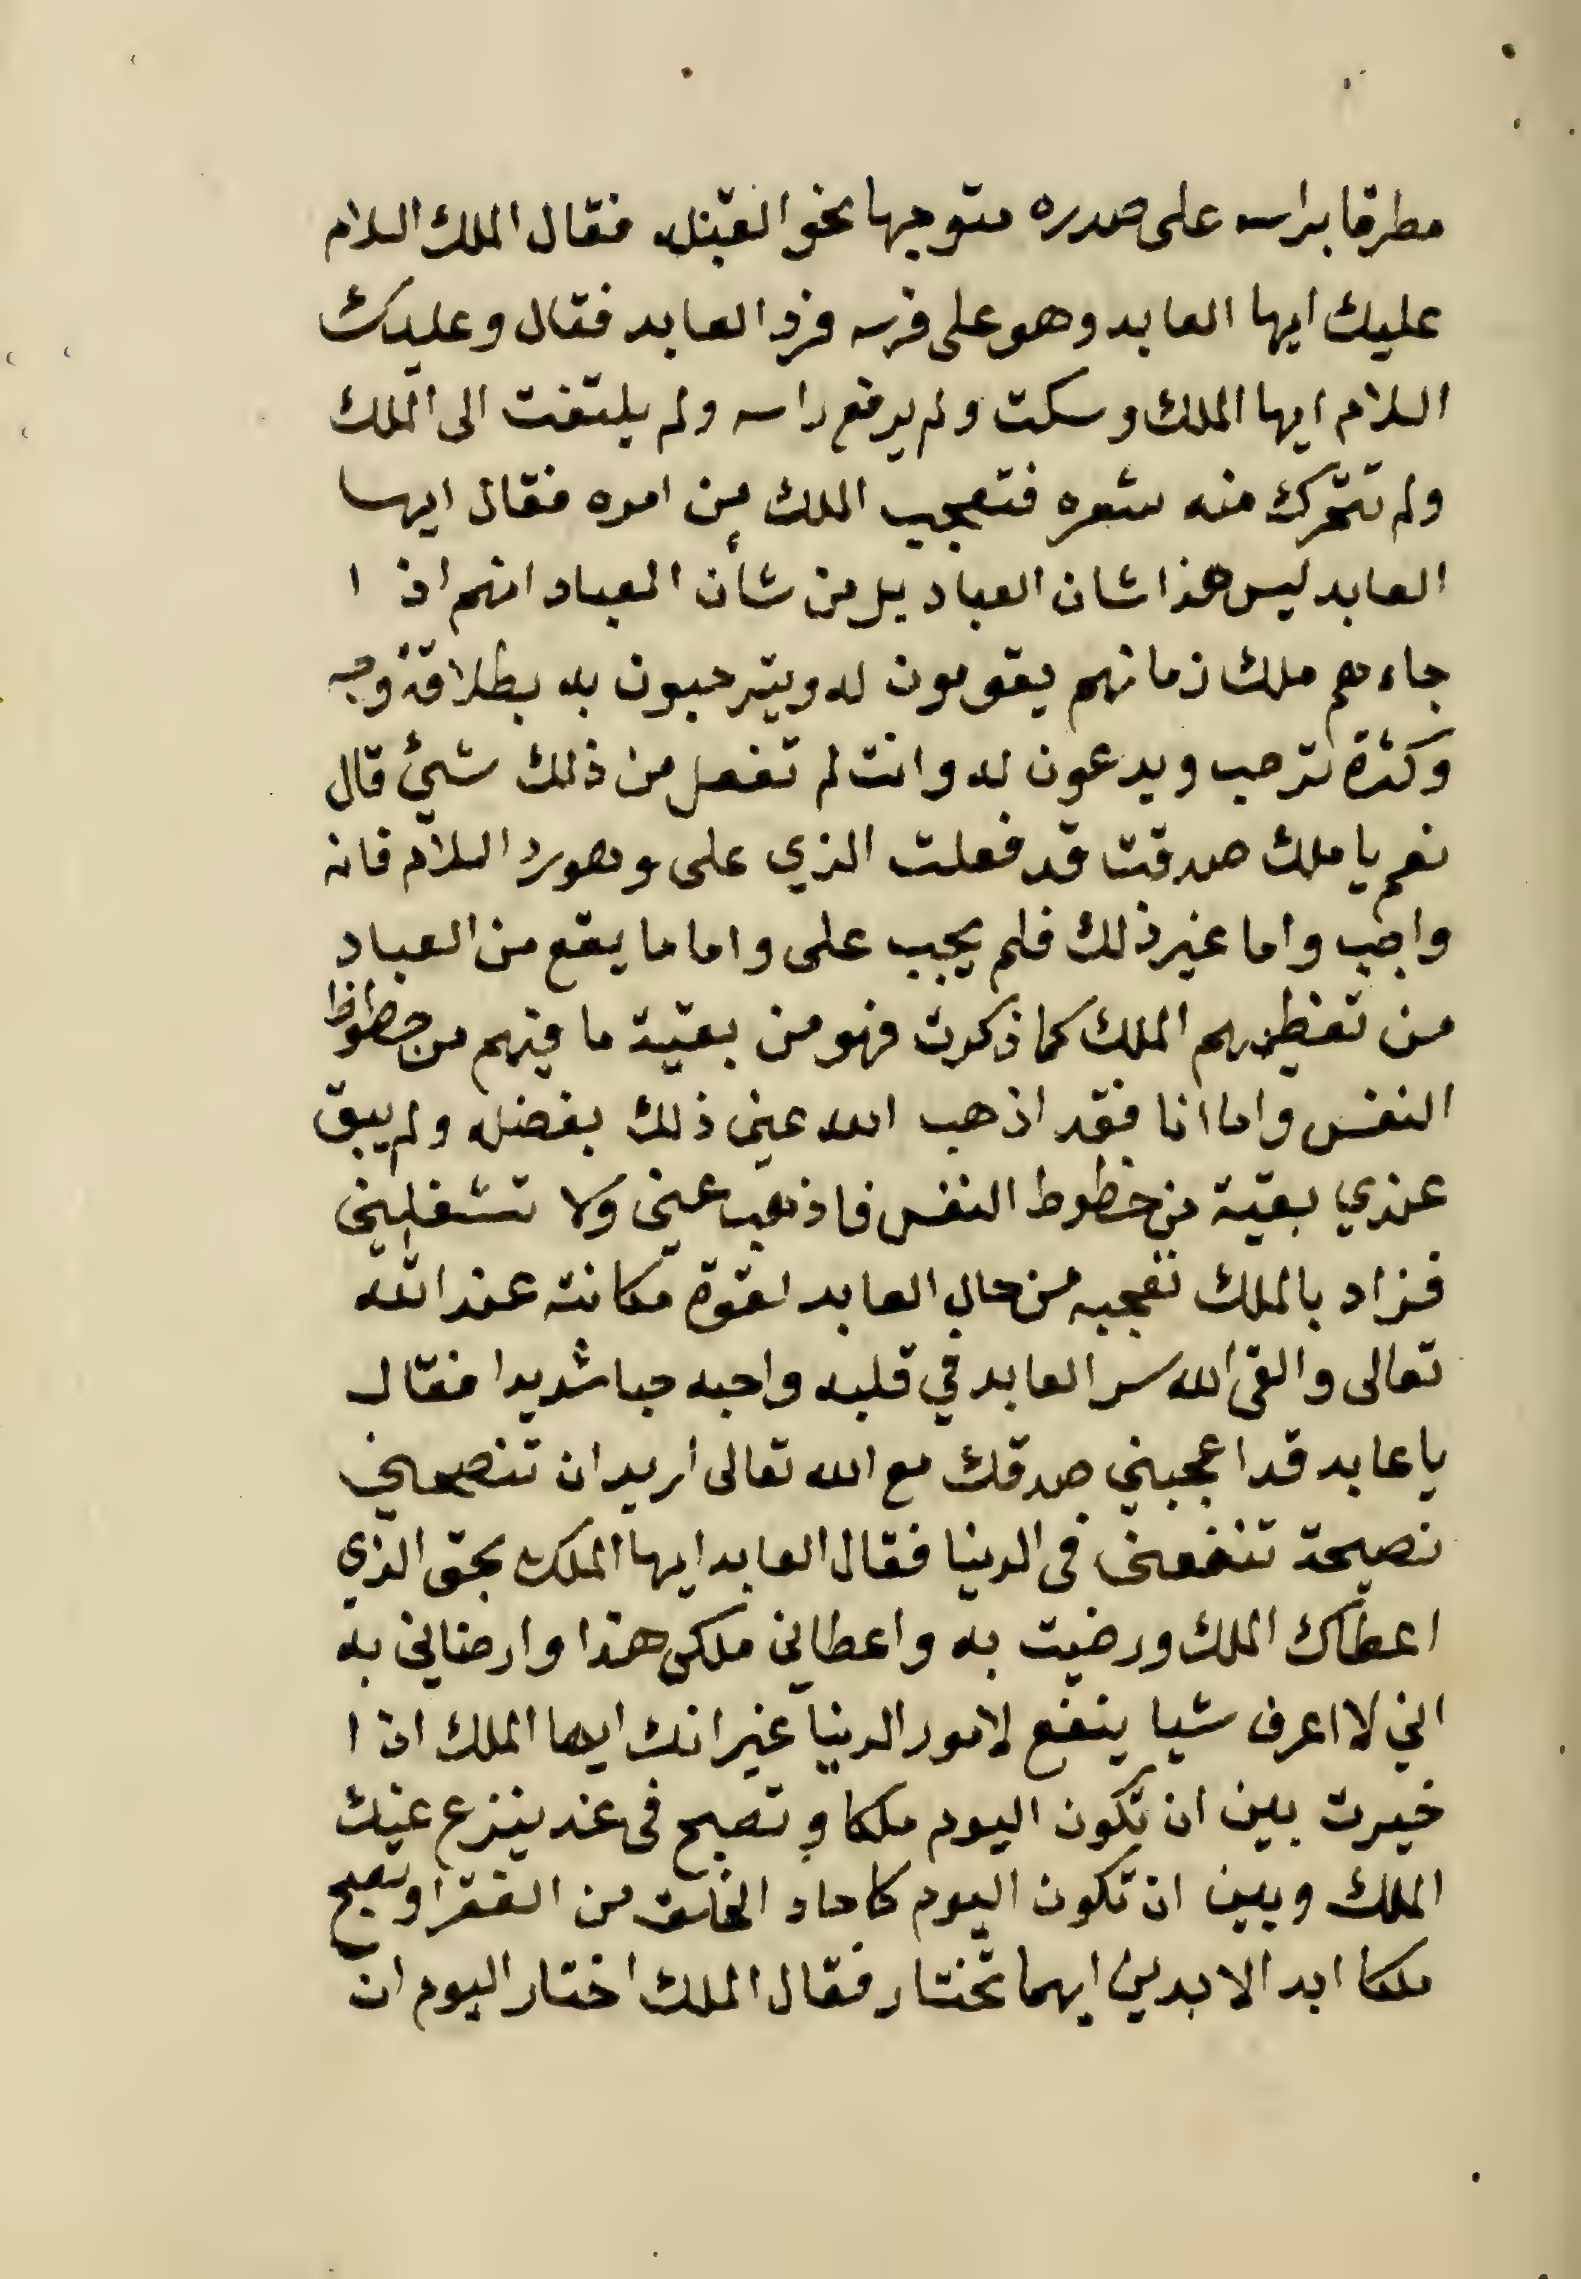 مطرقا براسه على صدره متوجها نحو القبله فقال الملك السلام
عليك ايها العابد وهو على فرسه فرد العابد فقال وعليك
السلام ايها الملك وسكت ولم يرفع راسه ولم يلتفت الى الملك
ولم تتحرك منه شعره فتعجب الملك من امره فقال ايها
العابد ليس هذا شان العباد بل من شأن العباد انهم اذا
جاءهم ملك زمانهم يقومون له ويترحبون به بطلاقة وجه
وكثرة ترحب ويدعون له وانت لم تفعل من ذلك شيئ قال
نعم يا ملك صدقت قد فعلت الذي على وهو رد السلام فانه
واجب واما غير ذلك فلم يجب على واما ما يقع من العباد
من تعظيمهم الملك كما ذكرت فهو من بقية ما فيهم من حظوظ
النفس واما انا فقد اذهب الله عني ذلك بفضله ولم يبق
عندي بقية من حظوظ النفس فاذهب عني ولا تشغلني
فزاد بالملك تعجبه من حال العابد لقوة مكانته عند الله
تعالى والقى الله سر العابد في قلبه واحبه حبا شديدا فقال
يا عابد قد اعجبني صدقك مع الله تعالى اريد ان تنصحني
نصيحة تنفعني في الدنيا فقال العابد ايها الملك بحق الذي
اعطاك الملك ورضيت به واعطاني ملكي هذا وارضاني به
اني لا اعرف شيا ينفع لامور الدنيا غير انك ايها الملك اذا
خيرت بين ان تكون اليوم ملكا وتصبح في غد ينزع عنك
الملك وبين ان تكون اليوم كاحاد الخلق من الفقرا وتصبح
ملكا ابد الابدين ايهما تختار فقال الملك اختار اليوم ان